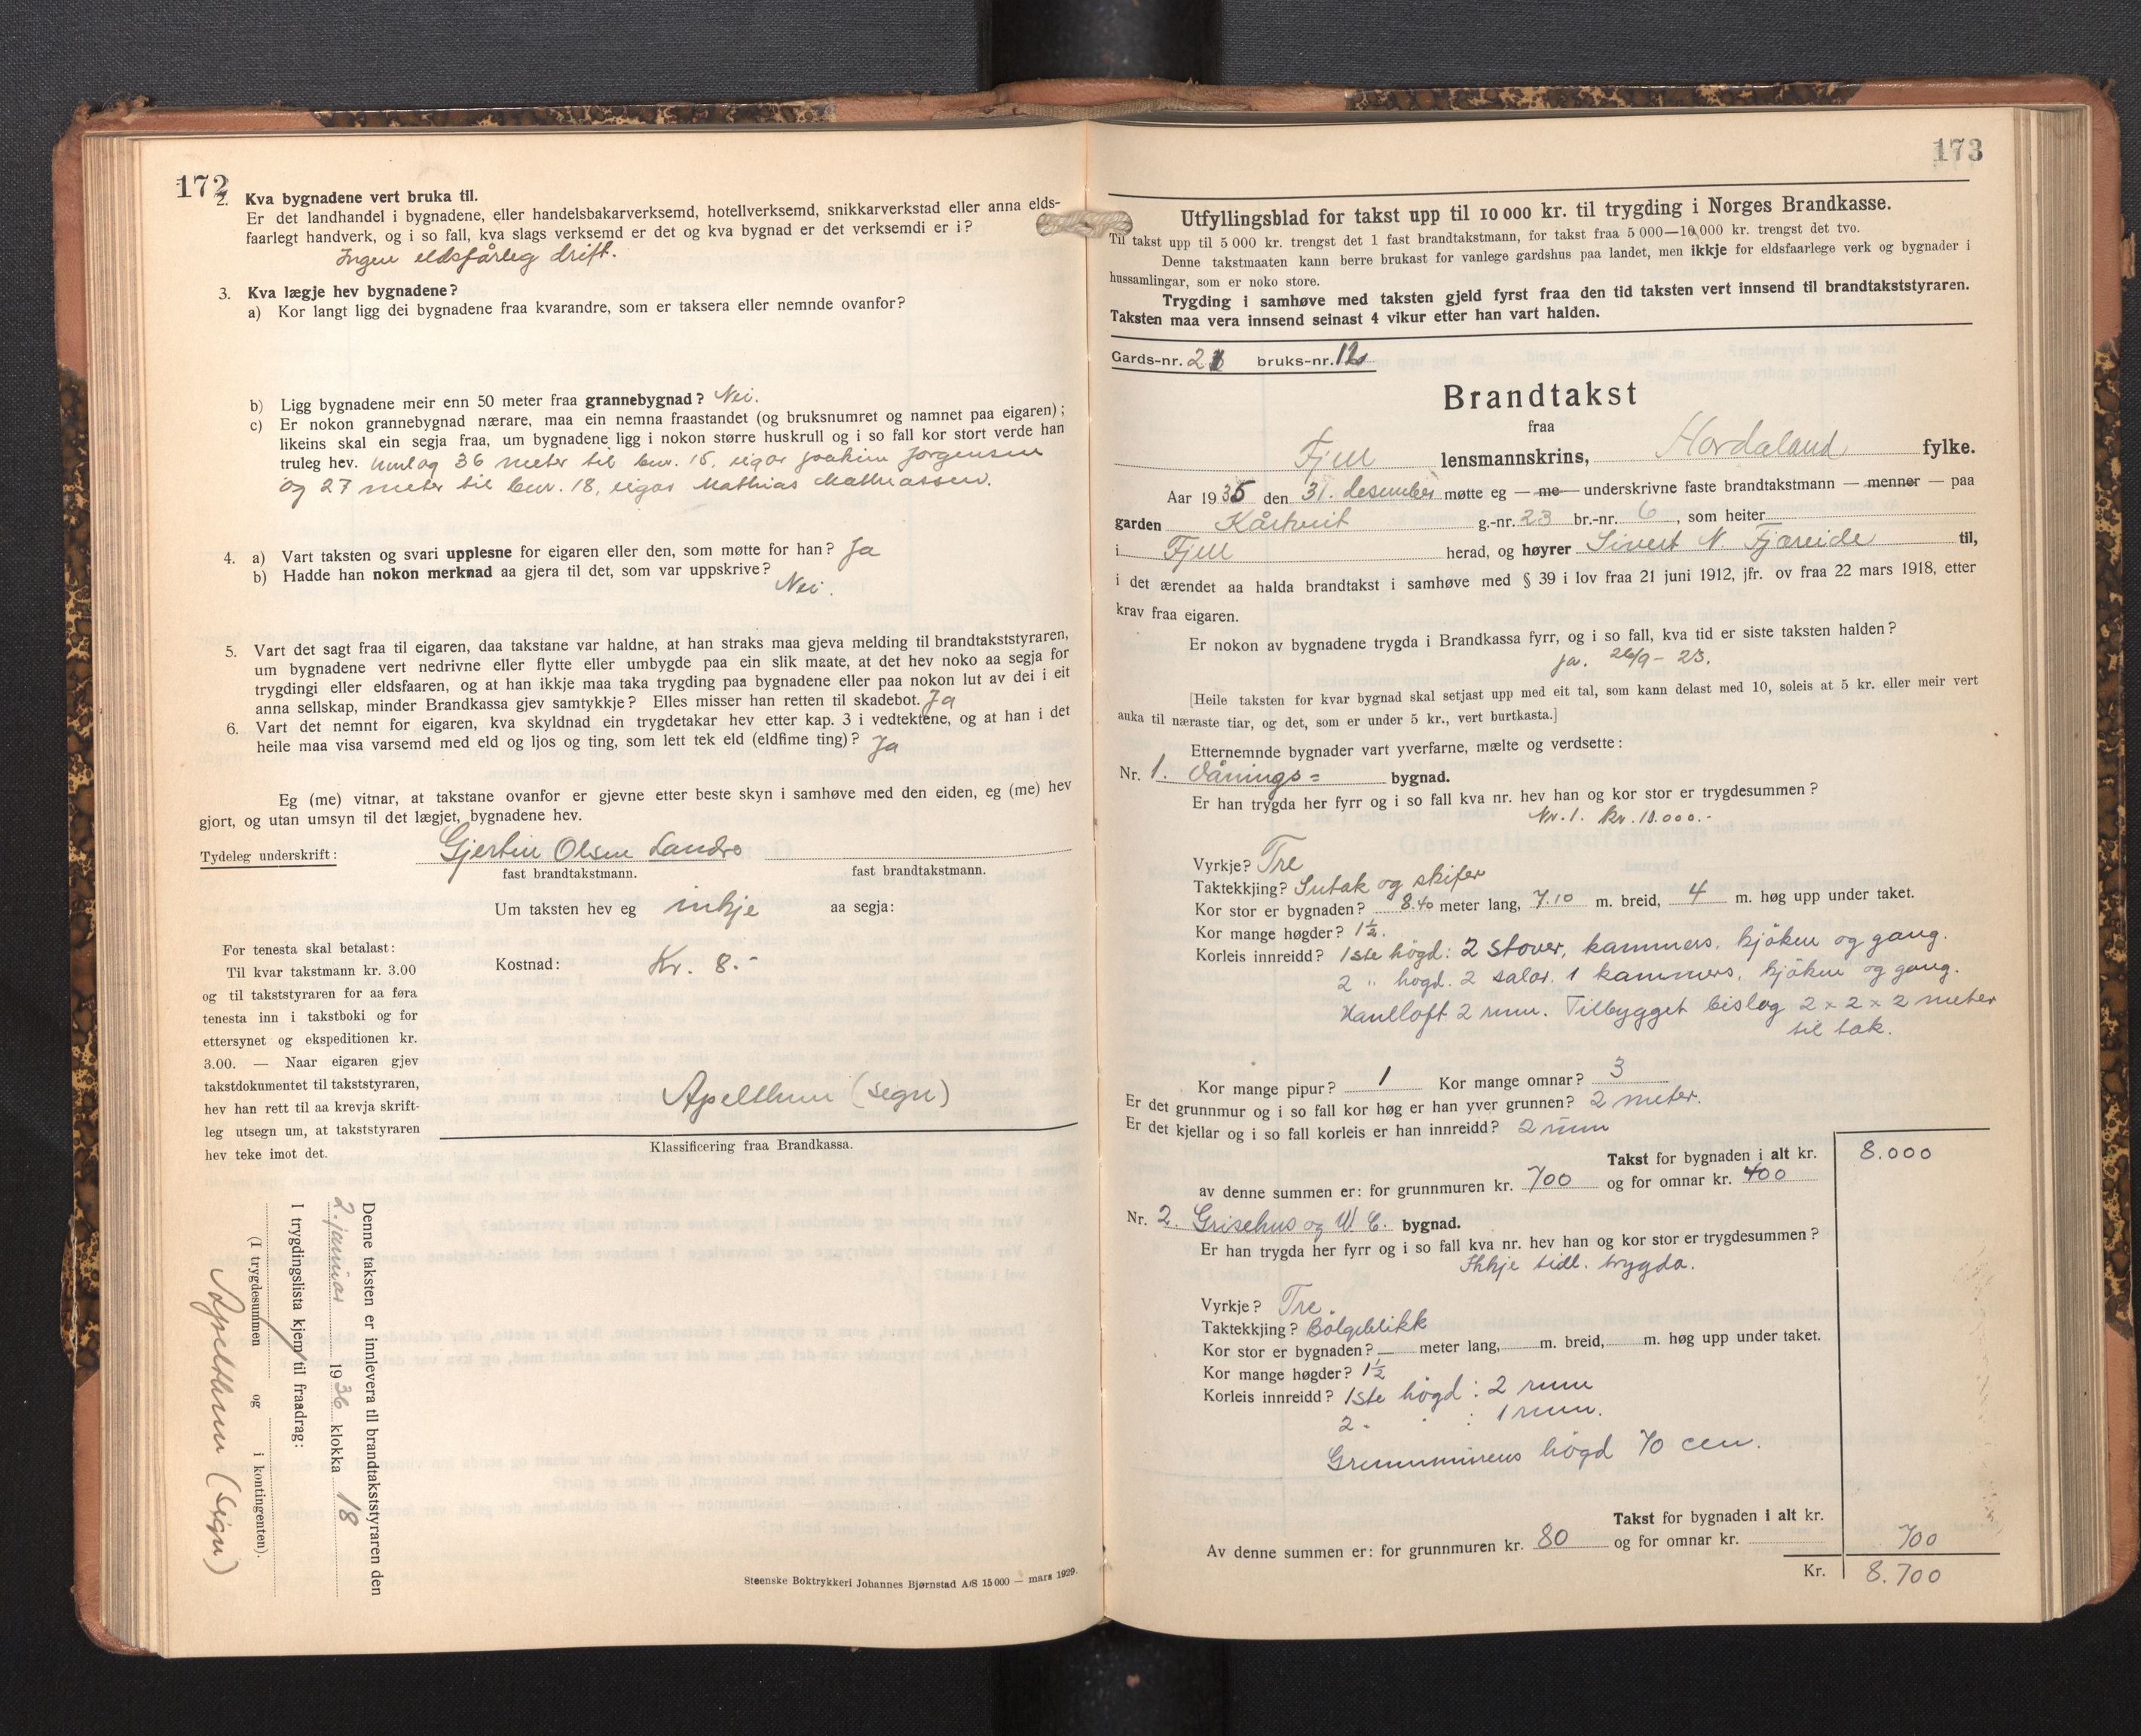 172
2. Kva bygnadene vert bruka til.
Er det landhandel i bygnadene, eller handelsbakarverksemd, hotellverksemd, snikkarverkstad eller anna elds-
faarlegt handverk, og i so fall, kva slags verksemd er det og kva bygnad er det verksemdi er i?
Ingen eldsfårleg drift.
3. Kva lægje hev bygnadene?
a) Kor langt ligg dei bygnadene fraa kvarandre, som er taksera eller nemnde ovanfor?
b) Ligg bygnadene meir enn 50 meter fraa grannebygnad? Nei.
c) Er nokon grannebygnad nærare, maa ein nemna fraastandet (og bruksnumret og namnet paa eigaren);
likeins skal ein segja fraa, um bygnadene ligg i nokon større huskrull og i so fall kor stort verde han
truleg hev. Umlag 36 meter til bnr. 15, eigar Joakim Jørgensen
og 27 meter til bnr. 18, eigar Mathias Mathiassen.
4. a) Vart taksten og svari upplesne for eigaren eller den, som møtte for han? Ja
b) Hadde han nokon merknad aa gjera til det, som var uppskrive?
Nei.
5. Vart det sagt fraa til eigaren, daa takstane var haldne, at han straks maa gjeva melding til brandtakststyraren,
um bygnadene vert nedrivne eller flytte eller umbygde paa ein slik maate, at det hev noko aa segja for
trygdingi eller eldsfaaren, og at han ikkje maa taka trygding paa bygnadene eller paa nokon lut av dei i eit
anna sellskap, minder Brandkassa gjev samtykkje? Elles misser han retten til skadebot. Ja
6. Vart det nemnt for eigaren, kva skyldnad ein trygdetakar hev etter kap. 3 i vedtektene, og at han i det
heile maa visa varsemd med eld og ljos og ting, som lett tek eld (eldfime ting)? Ja
Eg (me) vitnar, at takstane ovanfor er gjevne etter beste skyn i samhøve med den eiden, eg (me) hev
gjort, og utan umsyn til det lægjet, bygnadene hev.
Tydeleg underskrift: Gjertin Olsen Landro
fast brandtakstmann. fast brandtakstmann.
Um taksten hev eg inkje aa segja:
Kostnad: Kr. 8.-
For tenesta skal betalast:
Til kvar takstmann kr. 3.00
og til takststyraren for aa føra
tenesta inn i takstboki og for
ettersynet og ekspeditionen kr.
3.00. — Naar eigaren gjev
takstdokumentet til takststyraren,
hev han rett til aa krevja skrift-
leg utsegn um, at takststyraren
hev teke imot det.
Apelthun (sign)
Klassificering fraa Brandkassa.
Denne taksten er innlevera til brandtakststyraren den
2. januar 1936 klokka 18
I trygdingslista kjem til fraadrag:
(I trygdesummen og i kontingenten).
Apelthun (sign)
Steenske Boktrykkeri Johannes Bjørnstad A/S 15000 — mars 1929.
173
Utfyllingsblad for takst upp til 10 000 kr. til trygding i Norges Brandkasse.
Til takst upp til 5 000 kr. trengst det 1 fast brandtakstmann, for takst fraa 5 000—10,000 kr. trengst det tvo.
Denne takstmaaten kann berre brukast for vanlege gardshus paa landet, men ikkje for eldsfaarlege verk og bygnader i
hussamlingar, som er noko store.
Trygding i samhøve med taksten gjeld fyrst fraa den tid taksten vert innsend til brandtakststyraren.
Taksten maa vera innsend seinast 4 vikur etter han vart halden.
Gards-nr. bruks-nr.
Brandtakst
fraa
Fjell lensmannskrins, Hordaland fylke.
Aar 1935 den 31. desember møtte eg — me — underskrivne faste brandtakstmann — menner — paa
garden Kårtveit g.-nr. 23 br.-nr. 6, som heiter
i Fjell herad, og høyrer Sivert N. Fjæreide til,
i det ærendet aa halda brandtakst i samhøve med § 39 i lov fraa 21 juni 1912, jfr. ov fraa 22 mars 1918, etter
krav fraa eigaren.
Er nokon av bygnadene trygda i Brandkassa fyrr, og i so fall, kva tid er siste taksten halden?
Ja. 26/9 - 23.
[Heile taksten for kvar bygnad skal setjast upp med eit tal, som kann delast med 10, soleis at 5 kr. eller meir vert
auka til næraste tiar, og det, som er under 5 kr., vert burtkasta.]
Etternemnde bygnader vart yverfarne, mælte og verdsette:
Nr. 1. Vånings= bygnad.
Er han trygda her fyrr og i so fall kva nr. hev han og kor stor er trygdesummen?
Nr. 1. kr. 10.000.-
Vyrkje? Tre
Taktekkjing? Sutak og skifer
Kor stor er bygnaden? 8.40 meter lang, 7.10 m. breid, 4 m. høg upp under taket.
Kor mange høgder? 1½.
Korleis innreidd? 1ste høgd: 2 stover, kammers, kjøken og gang.
2 " høgd. 2 salar, 1 kammers, kjøken og gang.
Hanelloft 2 rum. Tilbygget bislag 2 x 2 x 2 meter
til tak.
Kor mange pipur? 1 Kor mange omnar? 3
Er det grunnmur og i so fall kor høg er han yver grunnen? 2 meter.
Er det kjellar og i so fall korleis er han innreidd? 2 rum
Takst for bygnaden i alt kr. 8.000
av denne summen er: for grunnmuren kr. 700 og for omnar kr. 400
Nr. 2. Grisehus og W C. bygnad.
Er han trygda her fyrr og i so fall kva nr. hev han og kor stor er trygdesummen?
Ikkje tidl. trygda.
Vyrkje? Tre.
Taktekkjing? Bølgeblikk
Kor stor er bygnaden? meter lang, m. breid, m. høg upp under taket.
Kor mange høgder? 1½
Korleis innreidd? 1ste høgd: 2 rum
2 - : 1 rum.
Grunnmurens høgd 70 cm.
Takst for bygnaden i alt kr. 700
Av denne summen er: for grunnmuren kr. 80 og for omnar kr.
Kr. 8.700